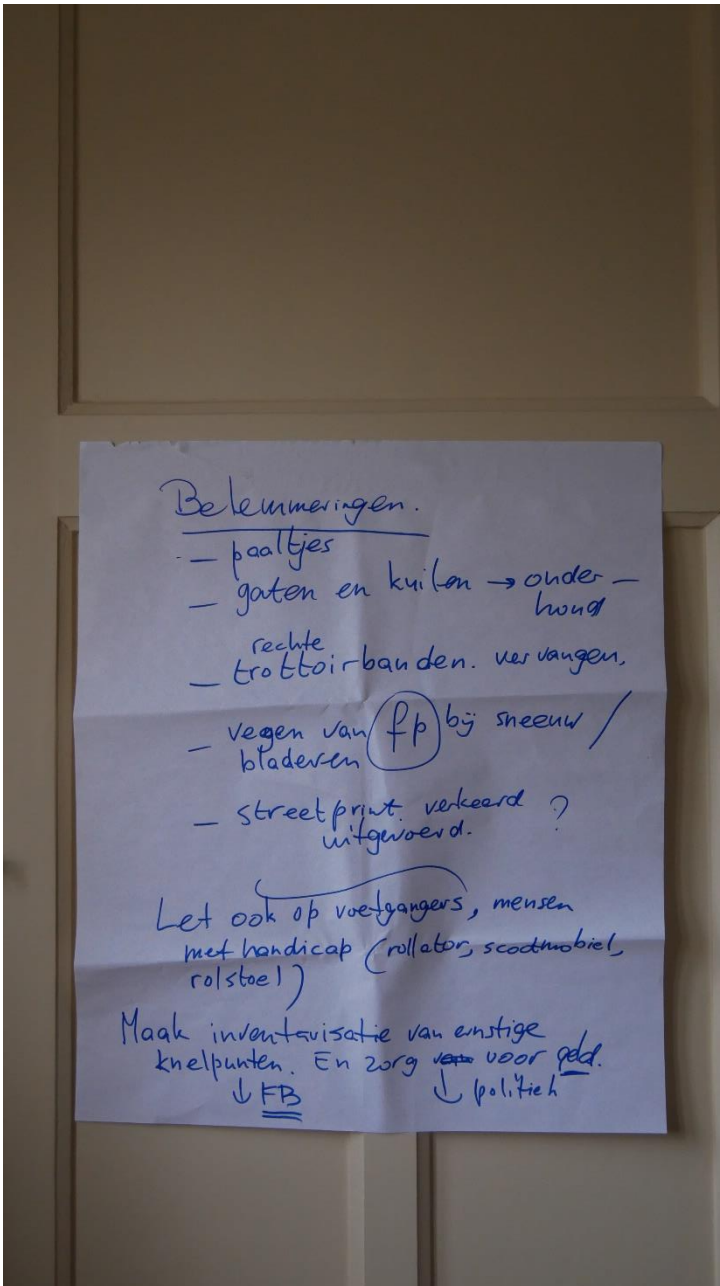 Belemmeringen.
- paaltjes
- gaten en kuilen → onder-
houd
rechte
- trottoirbanden. vervangen.
- vegen van fp bij sneeuw /
bladeren
- streetprint verkeerd ?
uitgevoerd.
Let ook op voetgangers, mensen
met handicap (rollator, scootmobiel,
rolstoel)
Maak inventarisatie van ernstige
knelpunten. En zorg voor geld.
↓ FB ↓ politiek